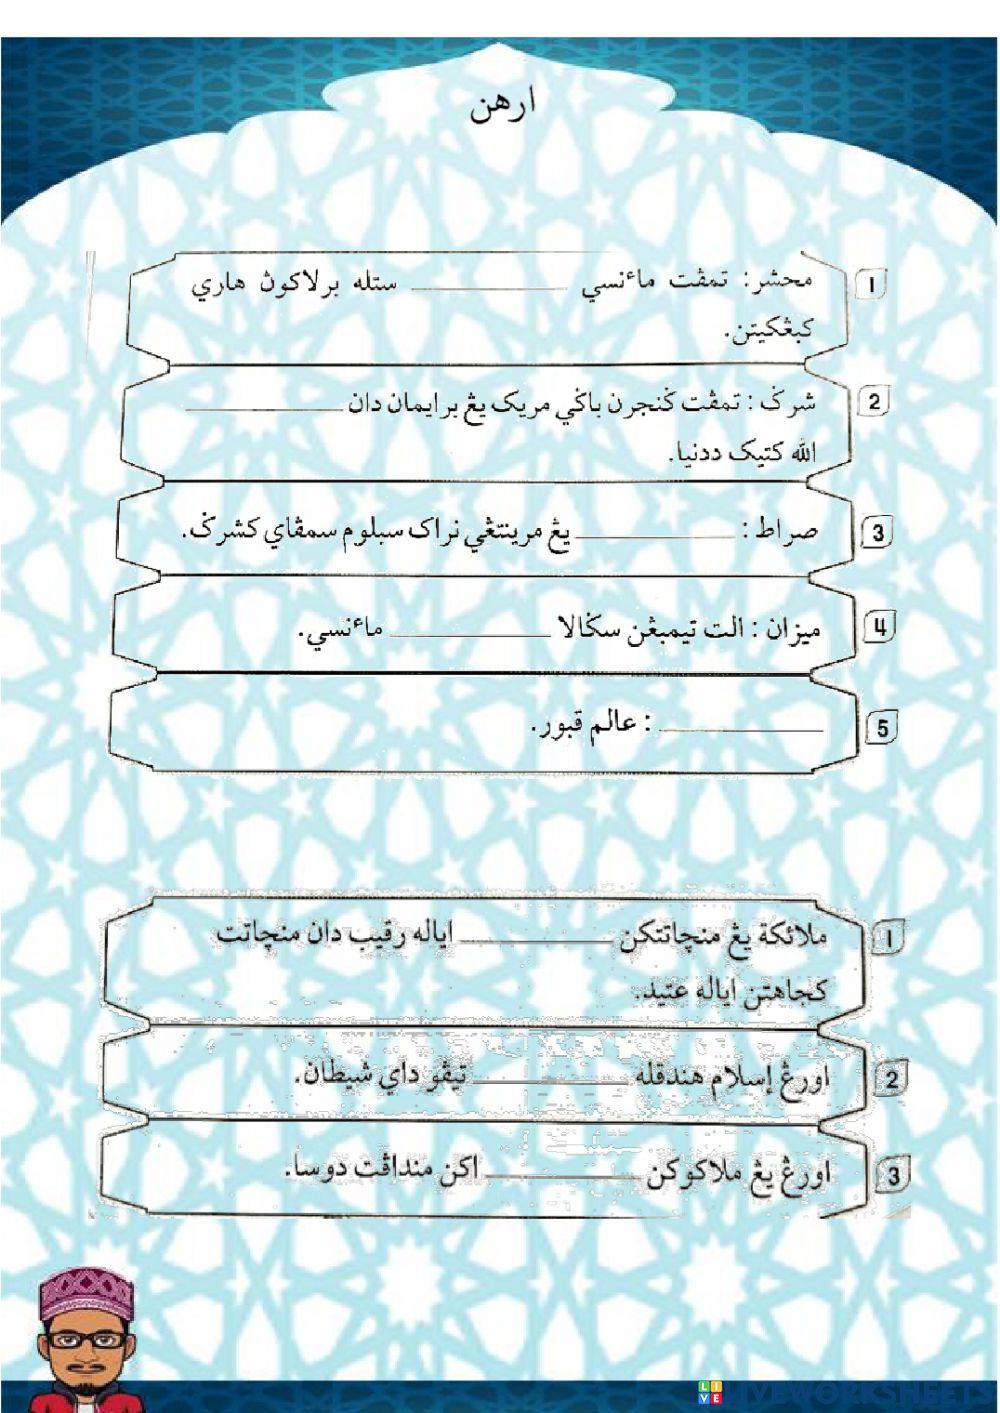 ارهن
1 محشر: تمڤت ماءنسي __________ ستله برلاكوڽ هاري
كبڠكيتن.
2 شرݢ : تمڤت ݢنجرن باݢي مريک يڠ برايمان دان __________
الله كتيک ددنيا.
3 صراط : __________ يڠ مرينتڠي نراک سبلوم سمڤاي كشرݢ.
4 ميزان : الت تيمبڠن سݢالا __________ ماءنسي.
5 __________ : عالم قبور.
1 ملائكة يڠ منچاتتكن __________ اياله رقيب دان منچاتت
كجاهتن اياله عتيد.
2 اورڠ إسلام هندقله __________ تيڤو داي شيطان.
3 اورڠ يڠ ملاكوكن __________ اكن منداڤت دوسا.
LIVEWORKSHEETS